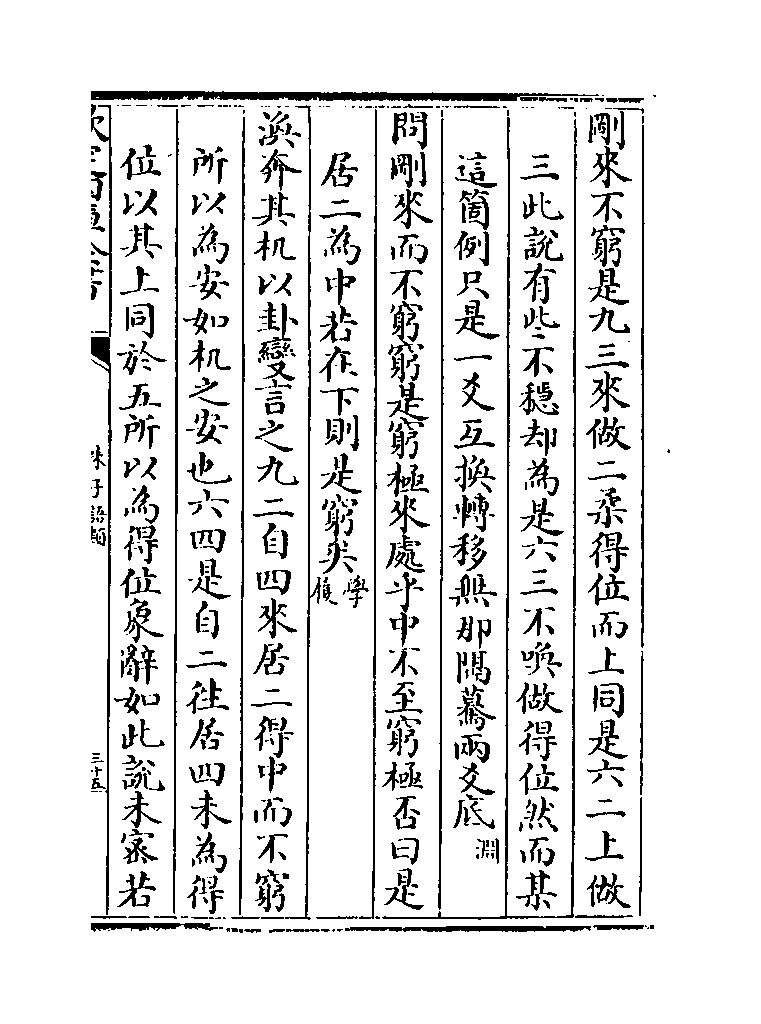 剛來不窮是九三來做二柔得位而上同是六二上做
三此說有些不穩却為是六三不喚做得位然而某
這箇例只是一爻互換轉移無那隔驀兩爻底 淵
問剛來而不窮窮是窮極來處乎中不至窮極否曰是
居二為中若在下則是窮矣 學
履
渙奔其机以卦變言之九二自四來居二得中而不窮
所以為安如机之安也六四是自二往居四未為得
位以其上同於五所以為得位象辭如此說未密若
欽定四庫全書
朱子語類
三十五